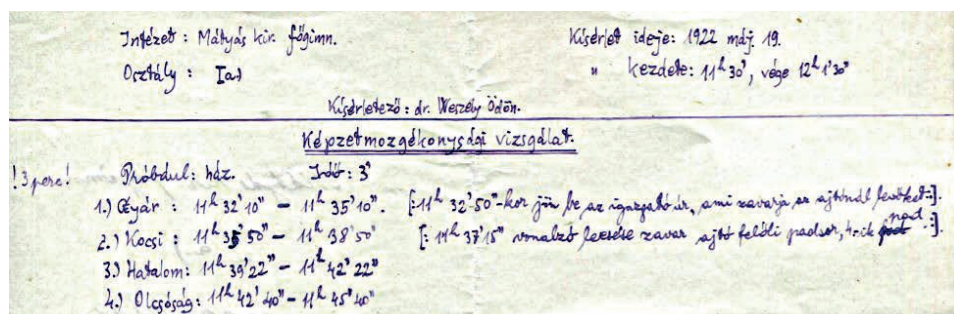 Intézet: Mátyás kir. főgimn. Kisérlet ideje: 1922 máj. 19.
Osztály: I a) " kezdete: 11h 30', vége 12h 1'30"
Kísérletező: dr. Weszely Ödön.
Képzetmozgékonysági vizsgálat.
!3 perc! Próbául: ház. Idő: 3'
1.) Gyár: 11h 32' 10" – 11h 35' 10". [:11h 32' 50"-kor jön be az igazgató úr, ami zavarja az ajtónál levőket:].
2.) Kocsi: 11h 35' 50" – 11h 38' 50" [: 11h 37' 15" vonalzó leesése zavar ajtó felőli padsor, 4-ik pad :].
3.) Hatalom: 11h 39' 22" – 11h 42' 22"
4.) Olcsóság: 11h 42' 40" – 11h 45' 40"